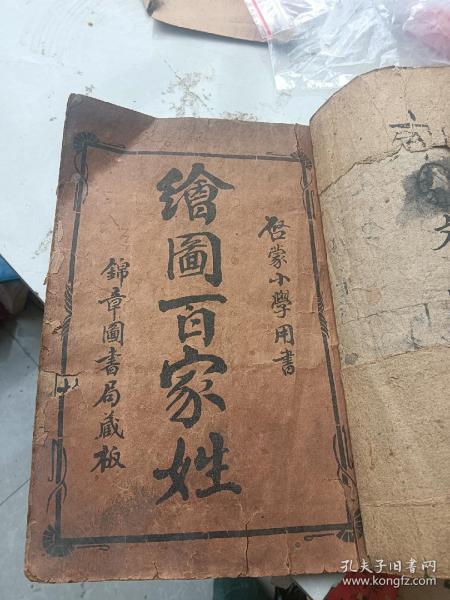 啓蒙小學用書
繪圖百家姓
錦章圖書局藏板
孔夫子旧书网
www.kongfz.com